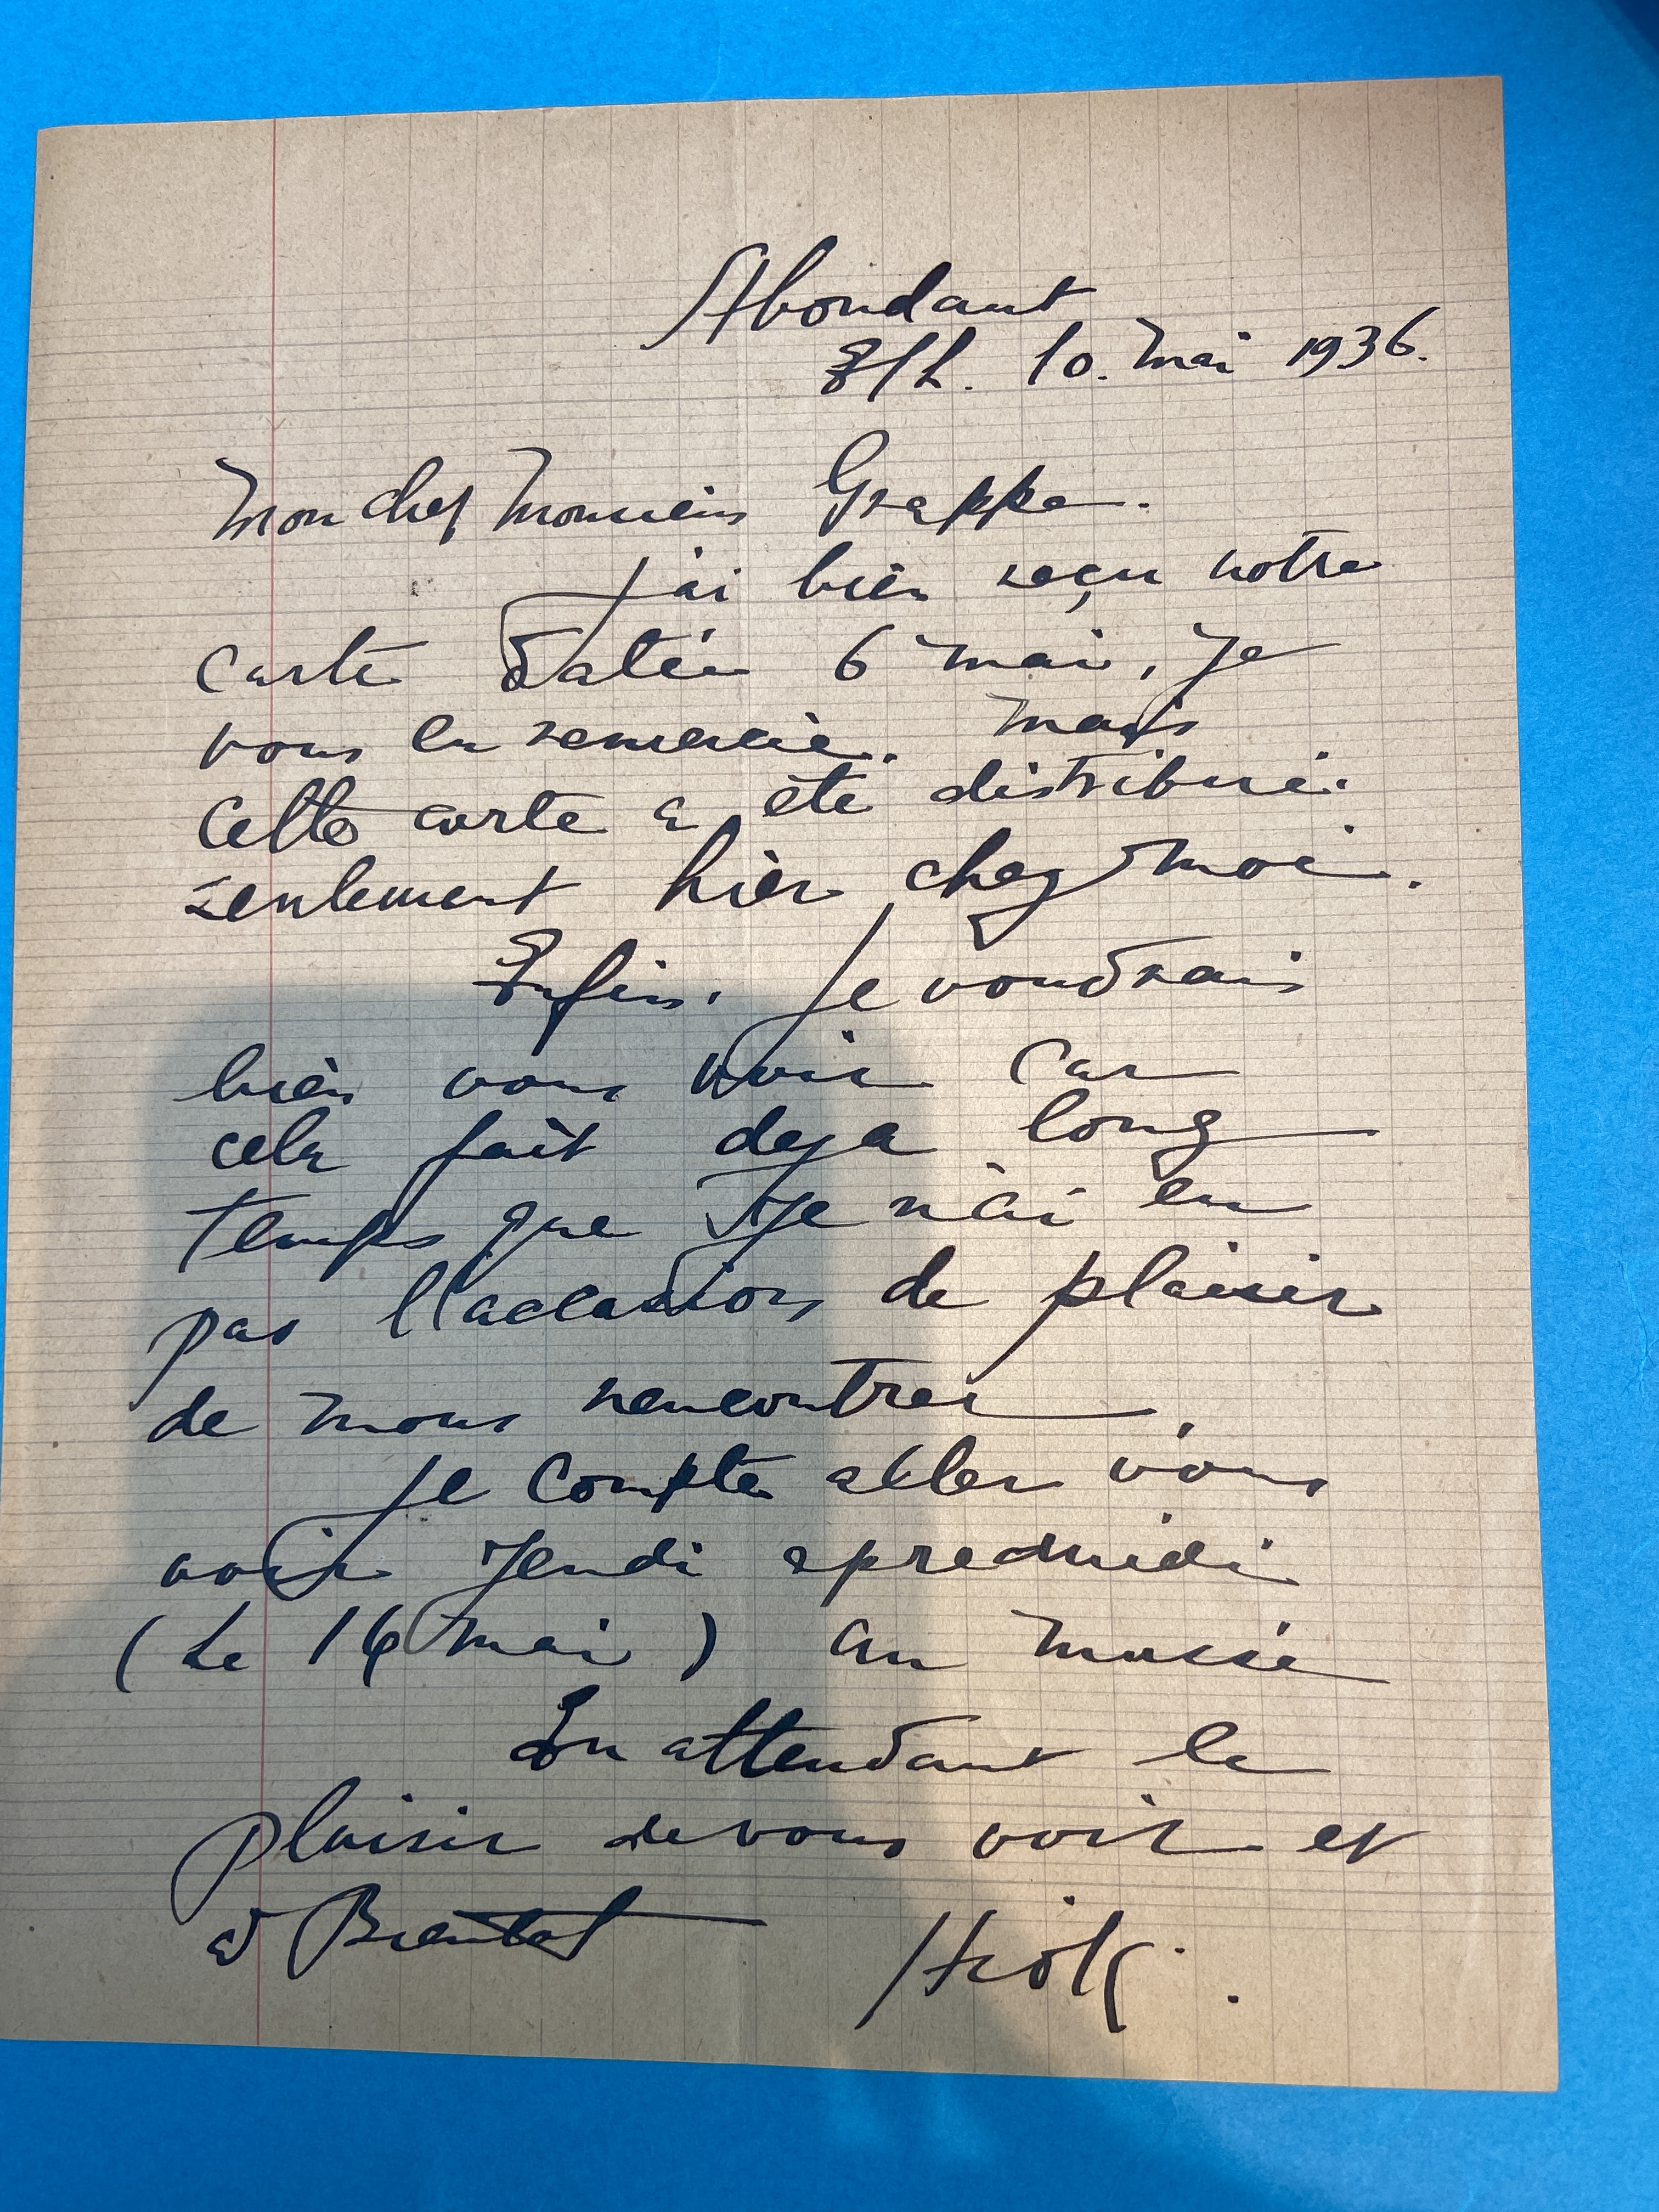 Abondant
E/L. 10. Mai 1936.
Mon cher Monsieur Grappe.
J'ai bien reçu votre
carte datée 6 mai, Je
vous en remercie. Mais
cette carte a été distribué.
seulement hier chez moi.
Enfin. Je voudrais
bien vous voir car
cela fait deja long
temps que Je n'ai eu
pas de plaisir
de nous rencontrer.
Je compte aller vous
voir Jeudi apredmidi
(Le mai) au musée
En attendant le
plaisir de vous voir et
a Bientot